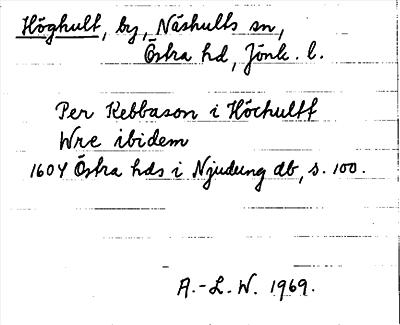 Höghult, by, Näshults sn,
Östra hd, Jönk. l.
Per Kebbason i Höchultt
Wre ibidem
1604 Östra hds i Njudung db, s. 100.
A.-L. W. 1969.